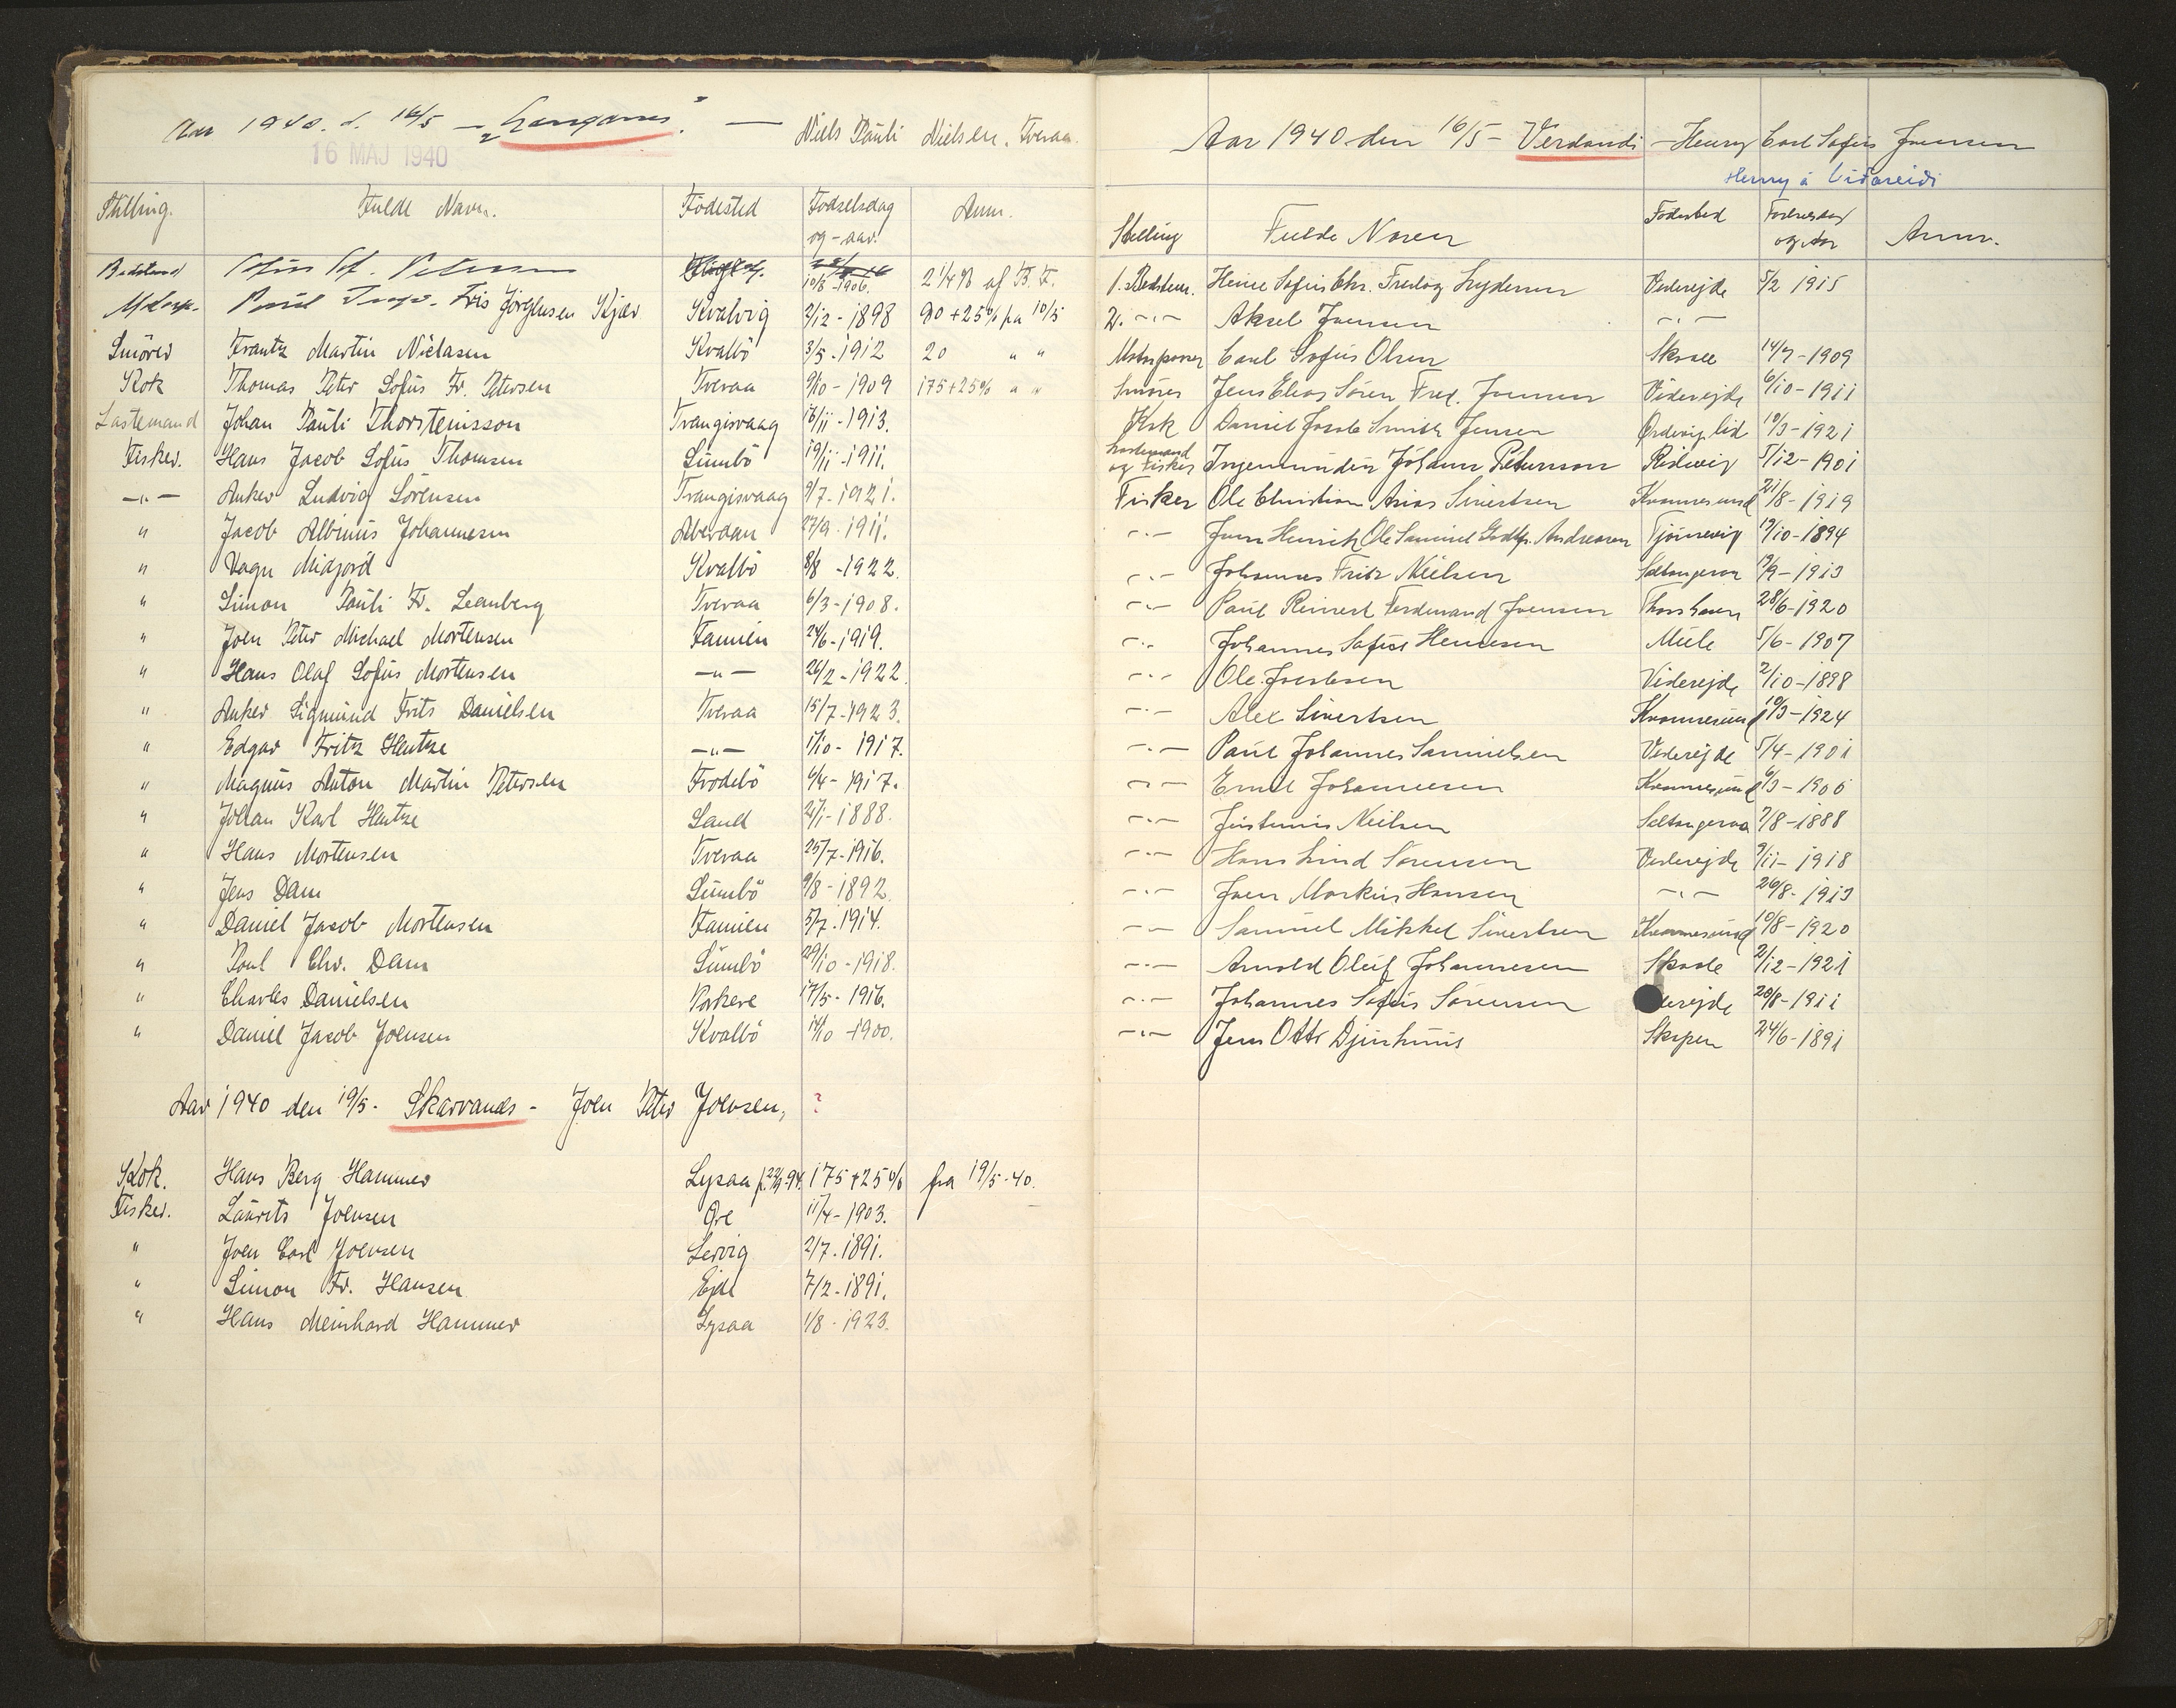 Aar 1940. d. 16/5 — „Langanes". — Niels Pauli Nielsen. Tveraa.
16 MAJ 1940
Stilling. Fulde Navn. Födested Födselsdag og-aar. Anm.
Bedstmd Petersen 10/8-1906. 2 1/4 % af B.F.
Poul Fris Jörgensen Kjær Kvalvig 2/12-1898 90+25% fra 10/5
Smörer Frantz Martin Niclasen Kvalbö 3/5-1912 20 " "
Kok Thomas Peter Sofus Fr. Petersen Tveraa 9/10-1909 175+25% " "
Lastemand Johan Pauli Thorsteinsson Trangisvaag 16/11-1913.
Fisker. Hans Jacob Sofus Thomsen Sumbö 19/11-1911.
—"— Anker Ludvig Sörensen Trangisvaag 9/7-1921.
" Jacob Albinus Johannesen Aberdaan 27/9-1911.
" Vagn Midjord Kvalbö 8/8-1922.
" Simon Pauli Fr. Leanberg Tveraa 6/3-1908.
" Joen Peter Michael Mortensen Famien 24/6-1919.
" Hans Olaf Sofus Mortensen —"— 26/2-1922.
" Anker Sigmund Frits Danielsen Tveraa 15/7-1923.
" Edgar Fritz Hentze —"— 1/10-1917.
" Magnus Anton Martin Petersen Frodebö 6/4-1917.
" Johan Karl Hentze Sand 21/1-1888.
" Hans Mortensen Tveraa 25/7-1916.
" Jens Dam Sumbö 9/8-1892.
" Daniel Jacob Mortensen Famien 5/7-1914.
" Poul Chr. Dam Sumbö 29/10-1918.
" Charles Danielsen Porkere 17/5-1916.
" Daniel Jacob Joensen Kvalbö 14/10-1900.
Aar 1940 den 19/5- Skarvanes - Joen Peter Joensen, ?
Kok. Hans Berg Hammer Lysaa f. 22/9-94. 175+25% fra 19/5-40.
Fisker. Laurits Joensen Öre 11/4-1903.
" Joen Carl Joensen Lervig 2/7-1891.
" Simon Fr. Hansen Ejde 7/2-1891.
" Hans Meinhard Hammer Lysaa 1/8-1923.
Aar 1940 den 16/5 - Verdandi - Henry Carl Sofus Joensen
Henry á Viðareiði
Stilling Fulde Navn Födested Födselsdag og Aar Anm.
1. Bedstem. Heine Sofus Chr. Fredlog Lydersen Viderejde 5/2 1915
2. -"- Aksel Joensen -"-
Motorpasser Carl Sofus Olsen Skaale 14/7-1909
Smörer Jens Elias Sören Fred. Joensen Viderejde 6/10-1911
Kok Daniel Jacob Smith Jensen Ördevig lid 19/3-1921
Lastemand og Fisker Ingemundur Jóhann Petursson Reidvig 5/12-1901
Fisker Ole Christian Arias Sivertsen Kvannesund 21/8-1919
-"- Joen Henrik Ole Samuel Godtfr. Andreasen Tjörnevig 19/10-1894
-"- Johannes Fritz Nielsen Saltangeraa 19/9-1913
-"- Paul Reinert Ferdinand Joensen Thorshavn 28/6-1920
-"- Johannes Sofus Henriksen Mule 5/6-1907
-"- Ole Jacobsen Viderejde 2/10-1898
-"- Alex Sivertsen Kvannesund 19/3-1924
-"- Paul Johannes Samuelsen Viderejde 5/4-1901
-"- Ernst Johannesen Kvannesund 6/3-1906
-"- Justinus Neilsen Saltangeraa 7/8-1888
-"- Hans Lind Sörensen Viderejde 9/11-1918
-"- Joen Markus Hansen -"- 26/8-1913
-"- Samuel Mikkel Sivertsen Kvannesund 10/8-1920
-"- Arnold Oluf Johannesen Skaale 2/12-1921
-"- Johannes Sofus Sörensen erejde 20/8-1911
-"- Jens Otto Djurhuus Skopen 24/6-1891